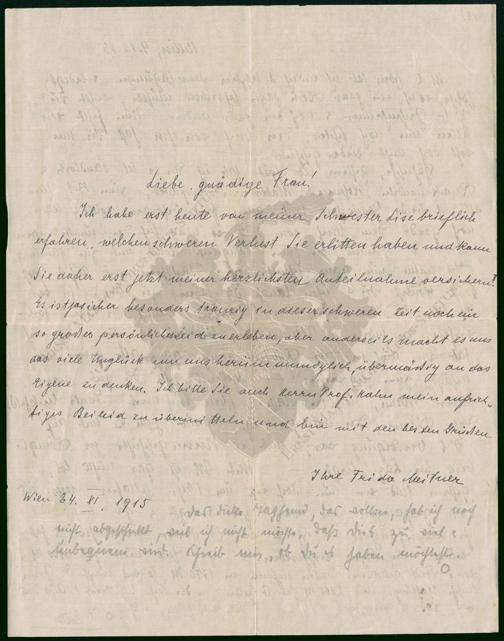 Liebe, gnädige Frau!
Ich habe erst heute von meiner Schwester Lise brieflich
erfahren, welchen schweren Verlust Sie erlitten haben und kann
Sie daher erst jetzt meiner herzlichsten Anteilnahme versichern.
Es ist ja sicher besonders traurig in dieser schweren Zeit noch ein
so großes persönliches Leid zu erleben, aber anderseits macht es uns
das viele Unglück um uns herum unmöglich, übermässig an das
Eigene zu denken. Ich bitte Sie auch Herrn Prof. Hahn mein aufrich-
tiges Beileid zu übermitteln und bin mit den besten Grüßen
Ihre Frida Meitner
Wien 24. XI. 1915
Das dicke, das hab ich noch
nicht abgeschickt, weil ich nicht möchte, daß Dir zu viel
unbequem wird. Schreib mir, ob du es haben möchtest.